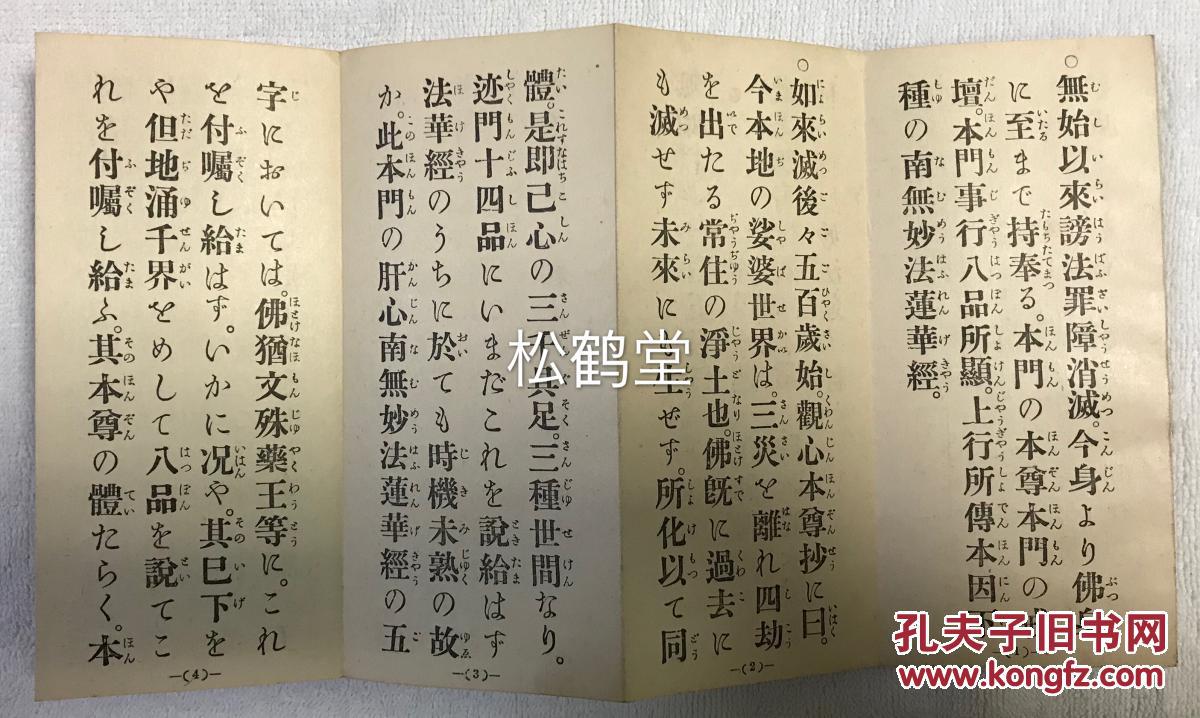 ○無始以來謗法罪障消滅。今身より佛身
に至まで持奉る。本門の本尊本門の
壇。本門事行八品所顯。上行所傳本因下
種の南無妙法蓮華經。
—(1)—
○如來滅後々五百歲始。觀心本尊抄に曰。
今本地の娑婆世界は。三災を離れ四劫
を出たる常住の淨土也。佛既に過去に
も滅せず未來にも生ぜず。所化以て同
—(2)—
體。是即己心の三千具足。三種世間なり。
迹門十四品にいまだこれを說給はず
法華經のうちに於ても時機未熟の故
か。此本門の肝心南無妙法蓮華經の五
—(3)—
字においては。佛猶文殊藥王等に。これ
を付囑し給はず。いかに況や。其已下を
や但地涌千界をめして八品を說てこ
れを付囑し給ふ。其本尊の體たらく。本
—(4)—
松鹤堂
孔夫子旧书网
www.kongfz.com